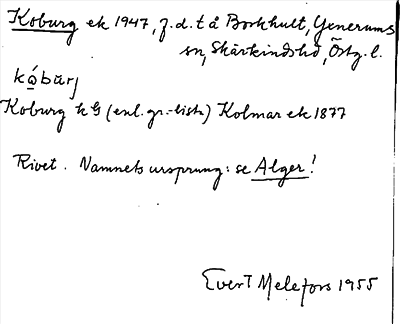 Koburg ek 1947, f.d. t å Borkhult, Yxnerums
sn, Skärkindshd, Östg. l.
kåbärj
Koburg k G (enl. gr.-listk) Kolmar ek 1877
Rivet. Namnets ursprung: se Alger!
Evert Melefors 1955